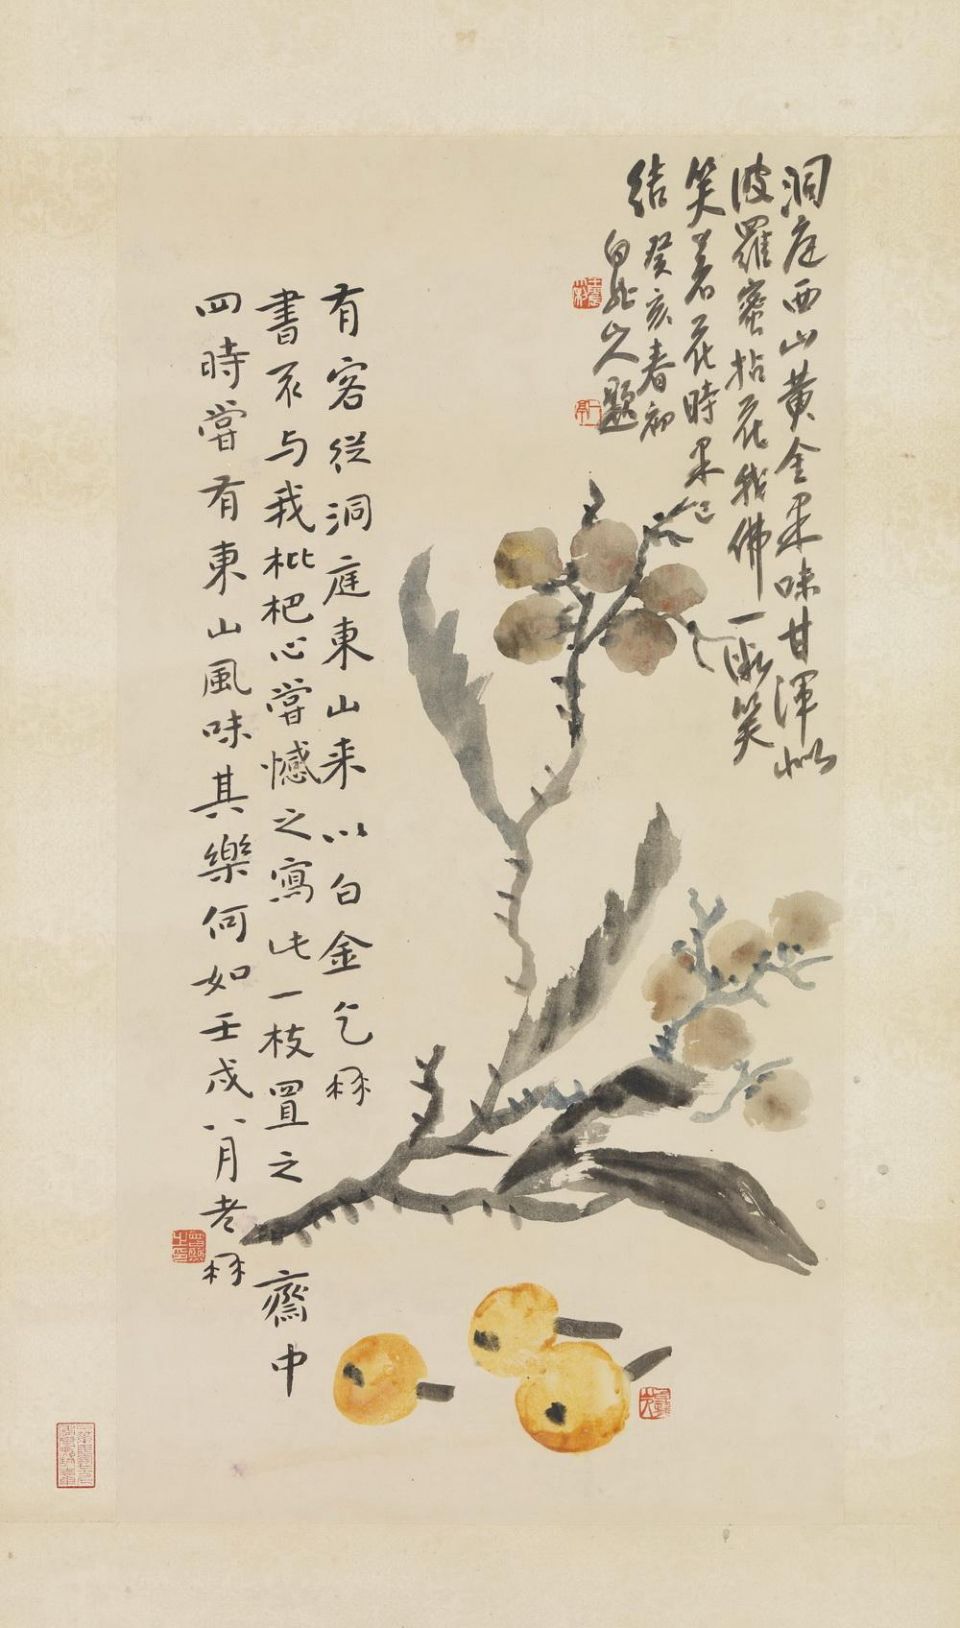 洞庭西山黃金果味甘渾似
波羅蜜拈花我佛一微笑
笑着花時果已
結癸亥春初
白龍山人題
有客從洞庭東山来以白金乞哥
書不与我枇杷心嘗憾之寫此一枝置之齋中
四時嘗有東山風味其樂何如壬戌八月老